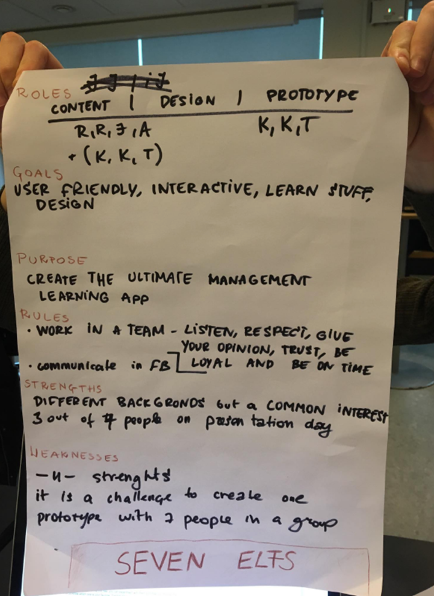 ROLES
CONTENT | DESIGN | PROTOTYPE
R, R, J, A K, K, T
+ (K, K, T)
GOALS
USER FRIENDLY, INTERACTIVE, LEARN STUFF,
DESIGN
PURPOSE
CREATE THE ULTIMATE MANAGEMENT
LEARNING APP
RULES
• WORK IN A TEAM - LISTEN, RESPECT, GIVE
YOUR OPINION, TRUST, BE
• communicate in FB LOYAL AND BE ON TIME
STRENGTHS
DIFFERENT BACKGRONDS but a COMMON INTEREST
3 out of 7 people on presentation day
WEAKNESSES
-u- strenghts
it is a challenge to create one
prototype with 7 people in a group
SEVEN ELFS